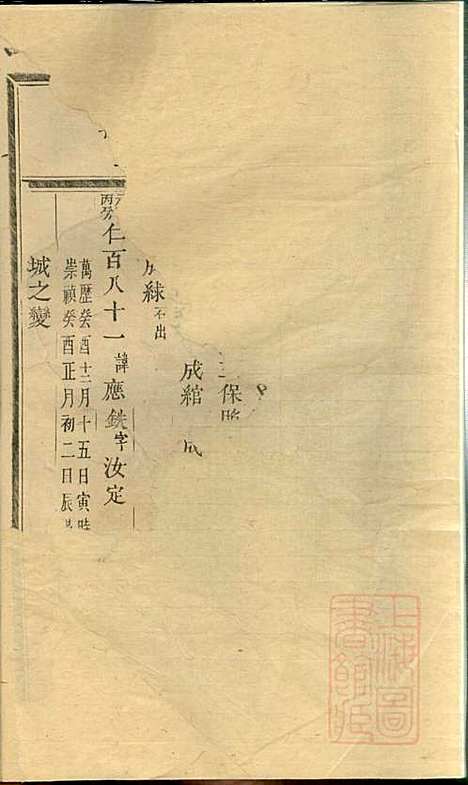 保
成綰 成
成綠不出
丙癸仁百八十一諱應銑字汝定
萬歷癸酉十二月十五日寅時
崇禎癸酉正月初二日辰
城之變
上海圖
書館藏